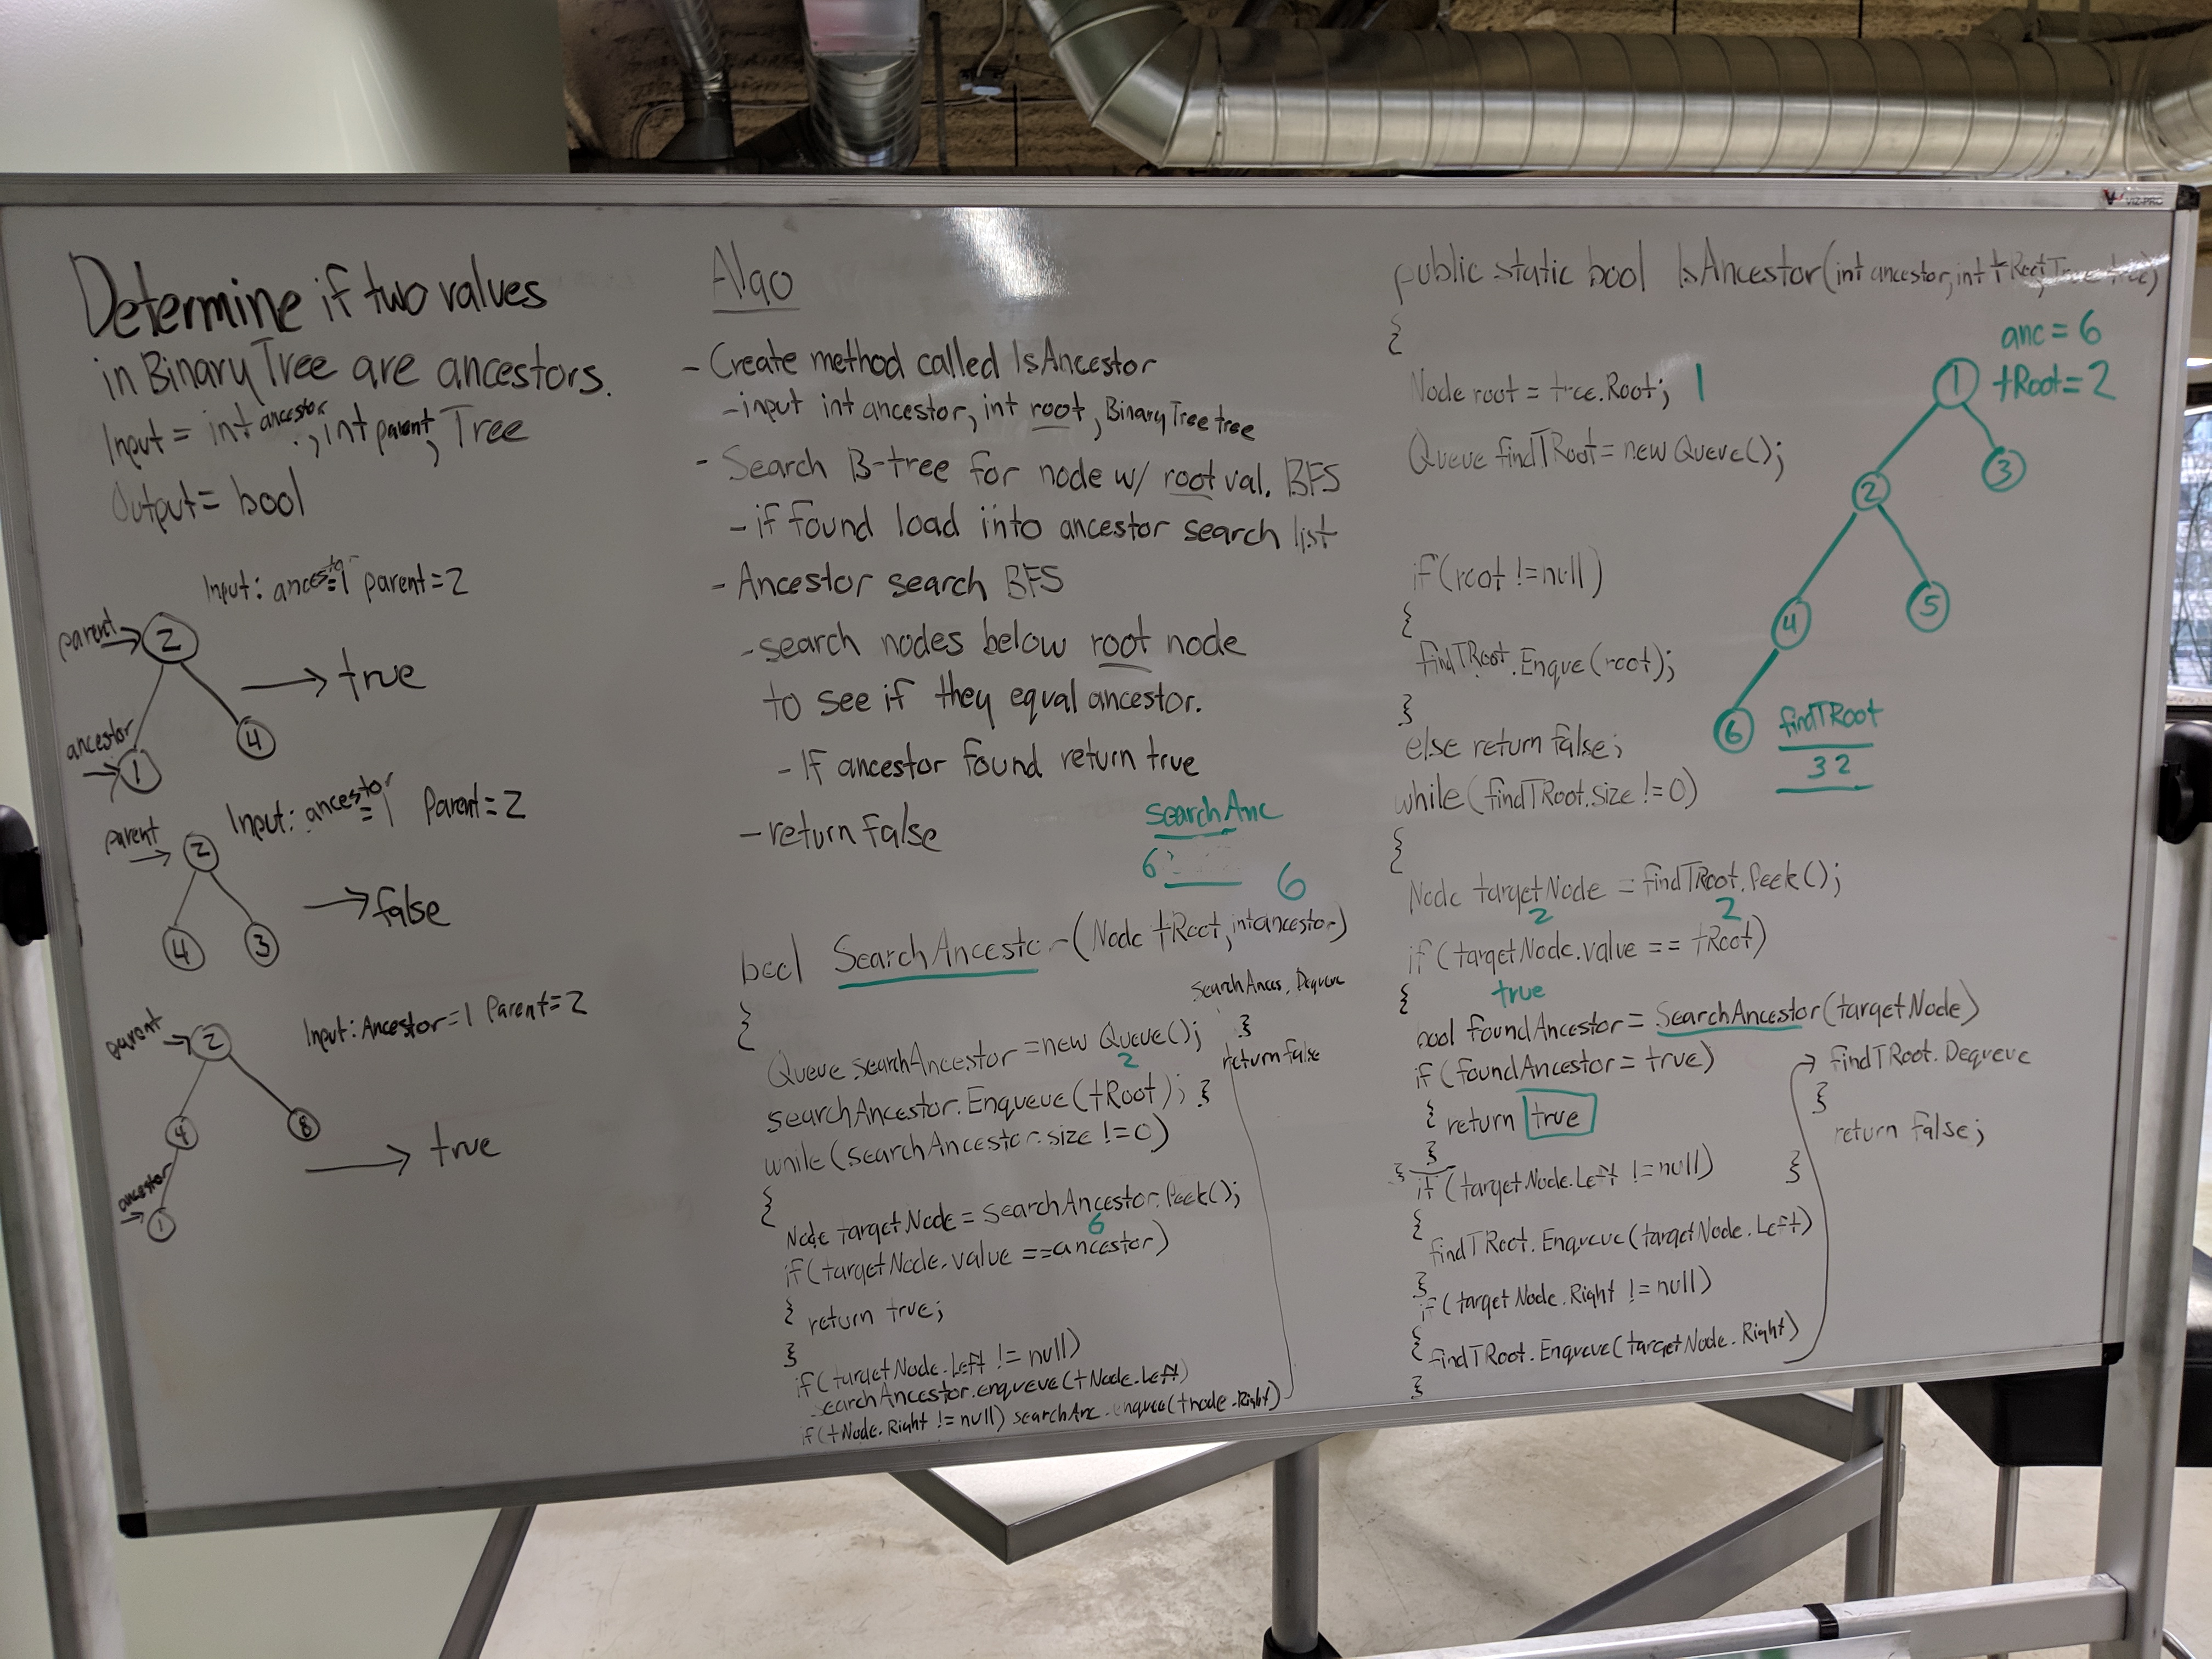 Determine if two values
in Binary Tree are ancestors.
Input = int ancestor, int parent, Tree
Output = bool
Input: ancestor=1 parent=2
parent
2
true
ancestor
1
4
Input: ancestor=1 Parent=2
parent
2
false
4
3
Input: Ancestor=1 Parent=2
parent
2
4
8
true
ancestor
1
Algo
- Create method called IsAncestor
-input int ancestor, int root, Binary Tree tree
- Search B-tree for node w/ root val. BFS
- if found load into ancestor search list
- Ancestor search BFS
- search nodes below root node
to see if they equal ancestor.
- If ancestor found return true
- return false
searchAnc
6
6
bool SearchAncestor(Node tRoot, int ancestor)
{
Queue searchAncestor = new Queue();
2
searchAncestor.Enqueue(tRoot); }
while(searchAncestor.size != 0)
{
Node targetNode = searchAncestor.Peek();
6
if(targetNode.value == ancestor)
{ return true;
}
if(targetNode.Left != null)
searchAncestor.enqueue(tNode.Left)
if(tNode.Right != null) searchAnc.enquee(tnode.Right)
searchAnces. Dequeue
}
return false
public static bool IsAncestor(int ancestor, int tRoot, Tree tree)
{
Node root = tree.Root; 1
Queue findTRoot = new Queue();
if(root != null)
{
findTRoot.Enque(root);
}
else return false;
while(findTRoot.size != 0)
{
Node targetNode = findTRoot.Peek();
2 2
if(targetNode.value == tRoot)
{ true
bool foundAncestor = SearchAncestor(targetNode)
if(foundAncestor = true)
{ return true
}
} if(targetNode.Left != null)
{
findTRoot.Enqueue(targetNode.Left)
}
if(targetNode.Right != null)
{
findTRoot.Enqueue(targetNode.Right)
}
findTRoot.Dequeue
}
return false;
}
anc = 6
tRoot = 2
1
2
3
4
5
6
findTRoot
3 2
VIZ-PRO